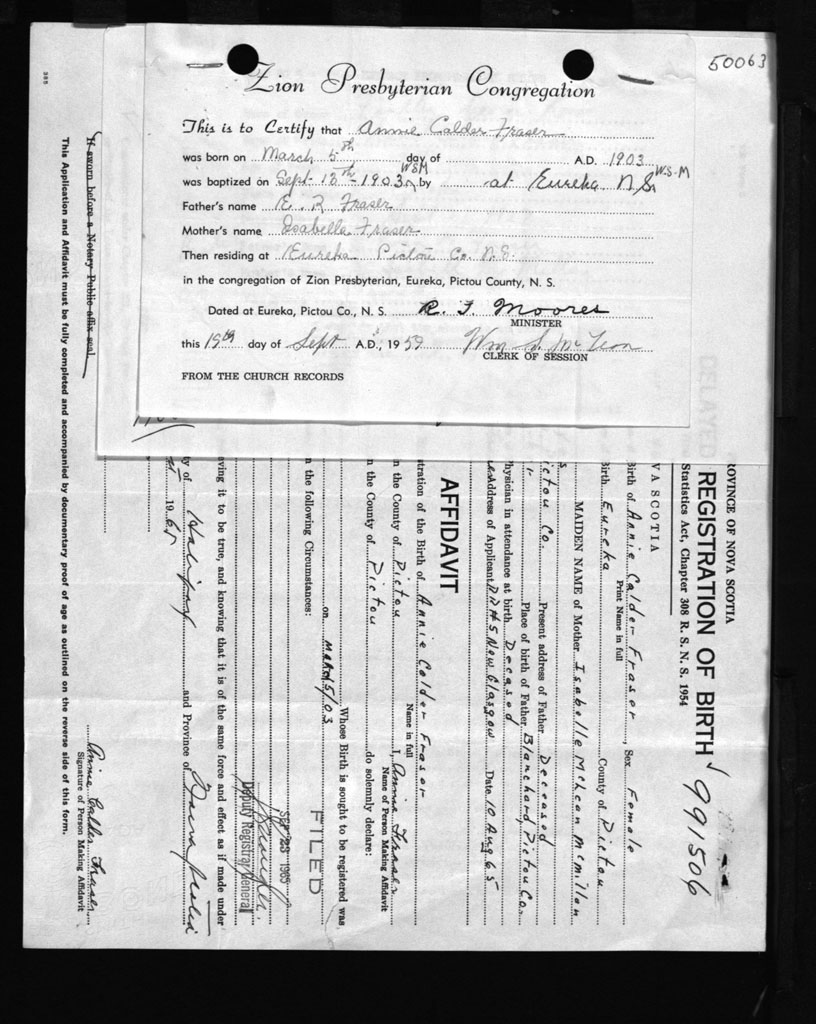 50063
Zion Presbyterian Congregation
This is to Certify that Annie Calder Fraser
was born on March 5th day of A.D. 1903
was baptized on Sept 13th 1903 WSM by at Eureka N.S. W.S.M
Father's name E. R. Fraser
Mother's name Isabella Fraser
Then residing at Eureka Pictou Co. N.S.
in the congregation of Zion Presbyterian, Eureka, Pictou County, N. S.
Dated at Eureka, Pictou Co., N. S. R. F. Moores
MINISTER
this 19th day of Sept A.D., 1959 Wm S. McLeon
CLERK OF SESSION
FROM THE CHURCH RECORDS
DELAYED
ROVINCE OF NOVA SCOTIA
REGISTRATION OF BIRTH 991506
Statistics Act, Chapter 308 R. S. N. S. 1954
VA SCOTIA
Birth of Annie Calder Fraser, Sex Female
Print Name in full
Birth Eureka County of Pictou
MAIDEN NAME of Mother Isabelle McLean McMillan
ictou Co. Present address of Father Deceased
Place of birth of Father Blanchard, Pictou Co.
hysician in attendance at birth Decased
Address of Applicant RR #5 New Glasgow Date 10 Aug 65
AFFIDAVIT
tration of the Birth of Annie Calder Fraser
Name in full
n the County of Pictou I, Annie Fraser
Name of Person Making Affidavit
n the County of Pictou do solemnly declare:
Whose Birth is sought to be registered was
on March 5/03
n the following Circumstances:
FILED
SEP 23 1965
Deputy Registrar General
aving it to be true, and knowing that it is of the same force and effect as if made under
ty of Halifax and Province of Nova Scotia
1965
Annie Calder Fraser
Signature of Person Making Affidavit
If sworn before a Notary Public affix seal.
This Application and Affidavit must be fully completed and accompanied by documentary proof of age as outlined on the reverse side of this form.